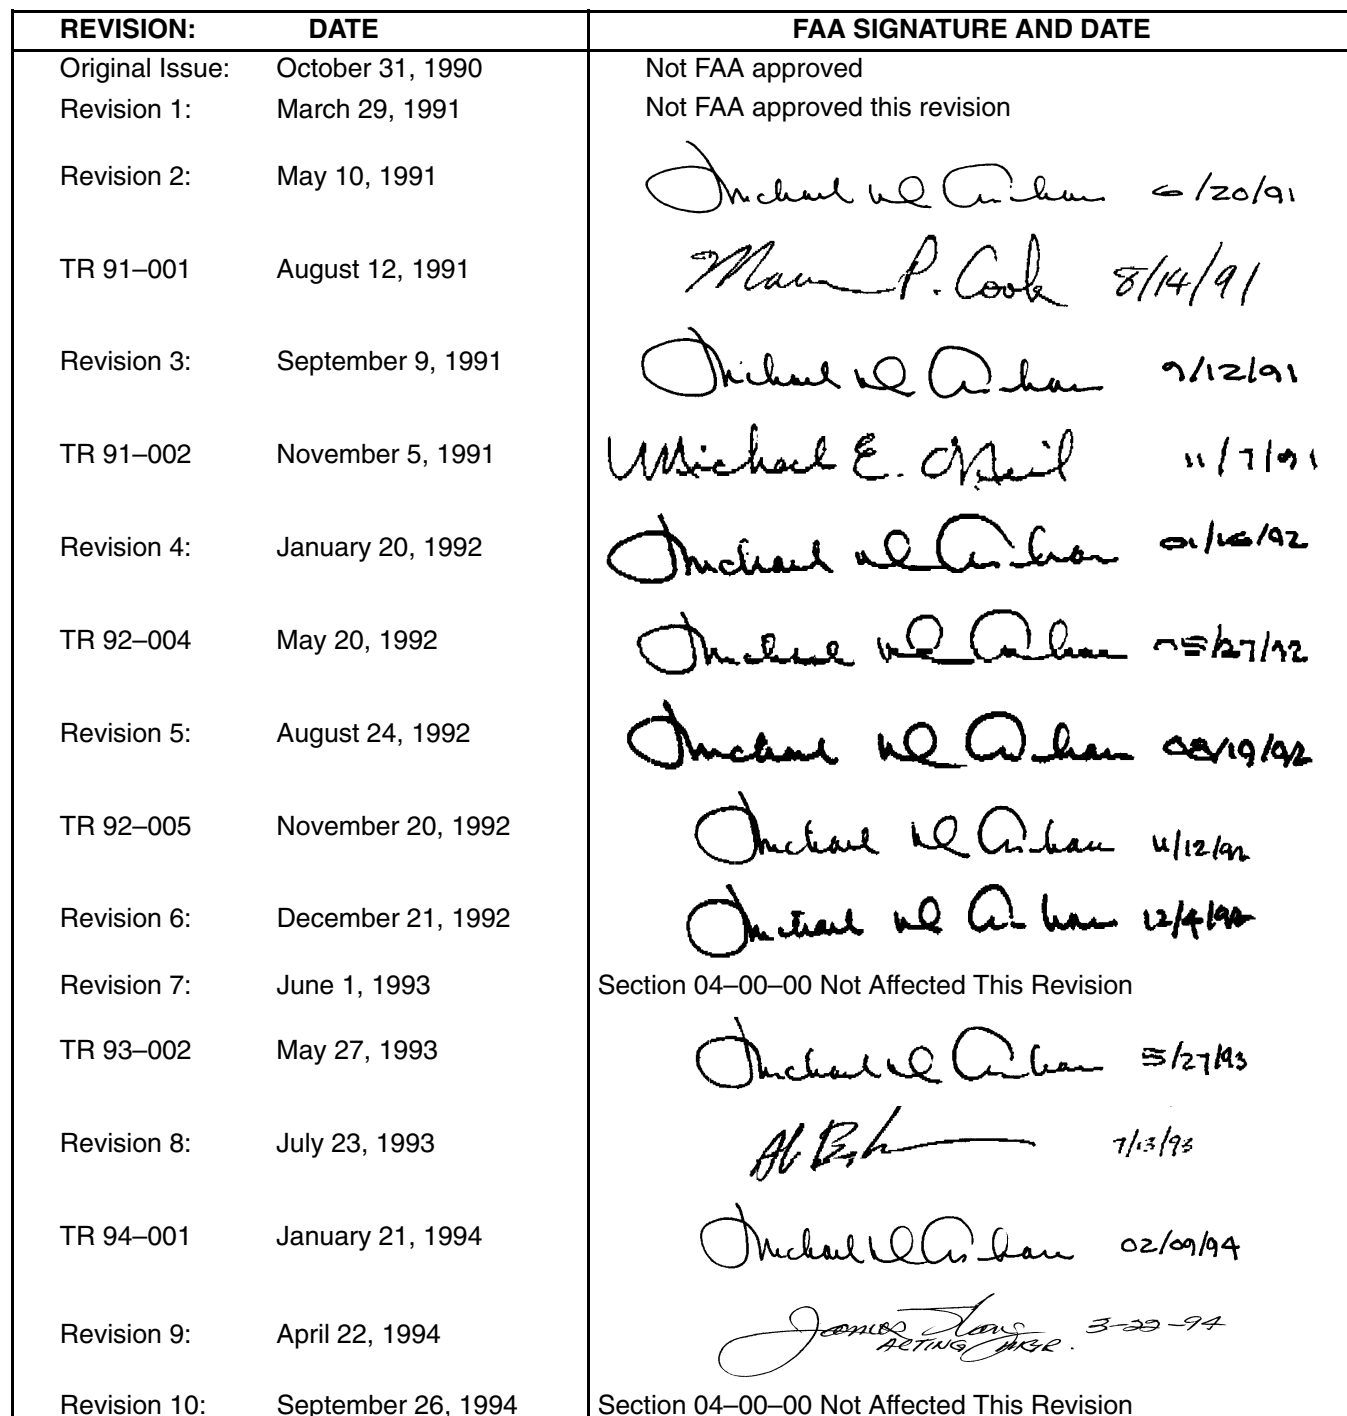 REVISION: DATE FAA SIGNATURE AND DATE
Original Issue: October 31, 1990 Not FAA approved
Revision 1: March 29, 1991 Not FAA approved this revision
Revision 2: May 10, 1991 Michael 6/20/91
TR 91–001 August 12, 1991 P. Cook 8/14/91
Revision 3: September 9, 1991 Michael 9/12/91
TR 91–002 November 5, 1991 Michael E. O'Neil 11/7/91
Revision 4: January 20, 1992 Michael 01/16/92
TR 92–004 May 20, 1992 Michael 05/27/92
Revision 5: August 24, 1992 Michael 08/19/92
TR 92–005 November 20, 1992 Michael 11/12/92
Revision 6: December 21, 1992 Michael 12/4/92
Revision 7: June 1, 1993 Section 04–00–00 Not Affected This Revision
TR 93–002 May 27, 1993 Michael 5/27/93
Revision 8: July 23, 1993 7/13/93
TR 94–001 January 21, 1994 Michael 02/09/94
Revision 9: April 22, 1994 James 3-22-94
ACTING MGR.
Revision 10: September 26, 1994 Section 04–00–00 Not Affected This Revision